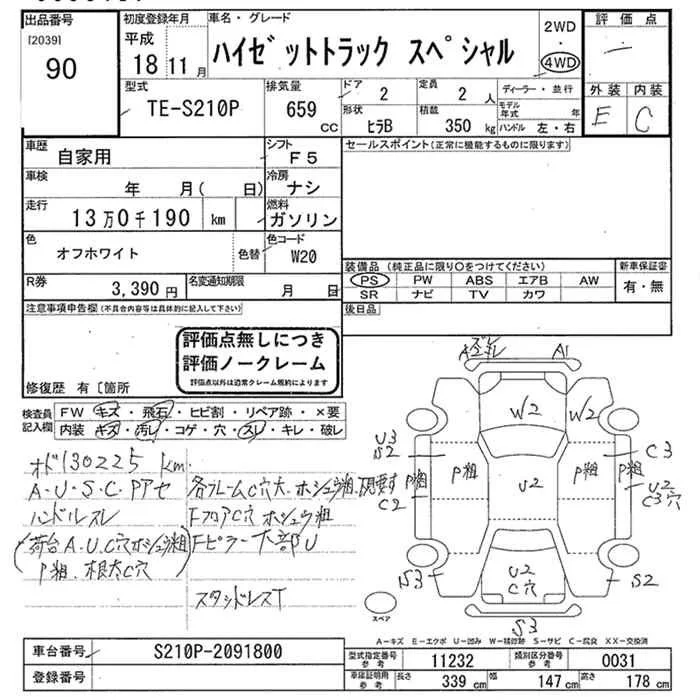 出品番号
[2039]
90
初度登録年月
平成
18 11 月
車名・グレード
ハイゼットトラック スペシャル
2WD
・
4WD
評価点
外装 内装
E C
型式
TE-S210P
排気量
659 cc
ドア
2
定員
2 人
形状
ヒラB
積載
350 kg
ディーラー・並行
モデル年式 年
ハンドル 左・右
車歴
自家用
シフト
F5
車検
年 月( 日)
冷房
ナシ
走行
13万0千190 km
燃料
ガソリン
色
オフホワイト
色替
色コード
W20
R券
3,390円
名変通知期限
月 日
セールスポイント(正常に機能するものに限ります)
装備品 (純正品に限り○をつけてください)
新車保証書
PS PW ABS エアB AW
SR ナビ TV カワ
有・無
後日品
注意事項申告欄(不具合内容等は具体的に記入して下さい)
評価点無しにつき
評価ノークレーム
評価点以外は通常クレーム規約によります
修復歴 有〔箇所
検査員
記入欄
FW キズ・飛石・ヒビ割・リペア跡・×要
内装 キズ・汚れ・コゲ・穴・スレ・キレ・破レ
オド130225 km
A・U・S・C・Pアセ
ハンドルスレ
荷台A.U.C穴ホシュウ粗
P粗.根太C穴
各フレームC穴大.ホシュウ粗.現車要す
FフロアC穴 ホシュウ粗
Fピラー下部U
スタッドレスT
A1
W2
W2
U3
S2
P粗
P粗
C2
U2
P粗
P粗
C3
U2
C3穴
S3
U2
C穴
S2
S3
スペア
A-キズ E-エクボ U-凹み W-補修跡 S-サビ C-腐食 XX-交換済
車台番号
S210P-2091800
登録番号
型式指定番号
参考
11232
類別区分番号
参考
0031
車庫証明用
参考
長さ 339 cm
幅 147 cm
高さ 178 cm